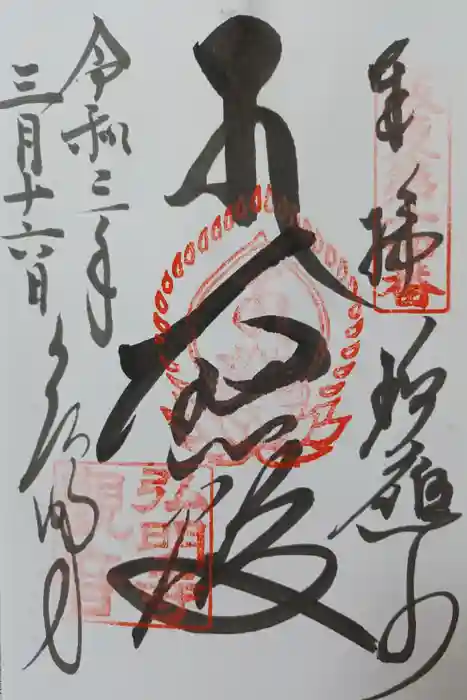 奉拝 瑞應山
大悲殿
令和三年
三月十六日 弘明寺
弘明寺
観音